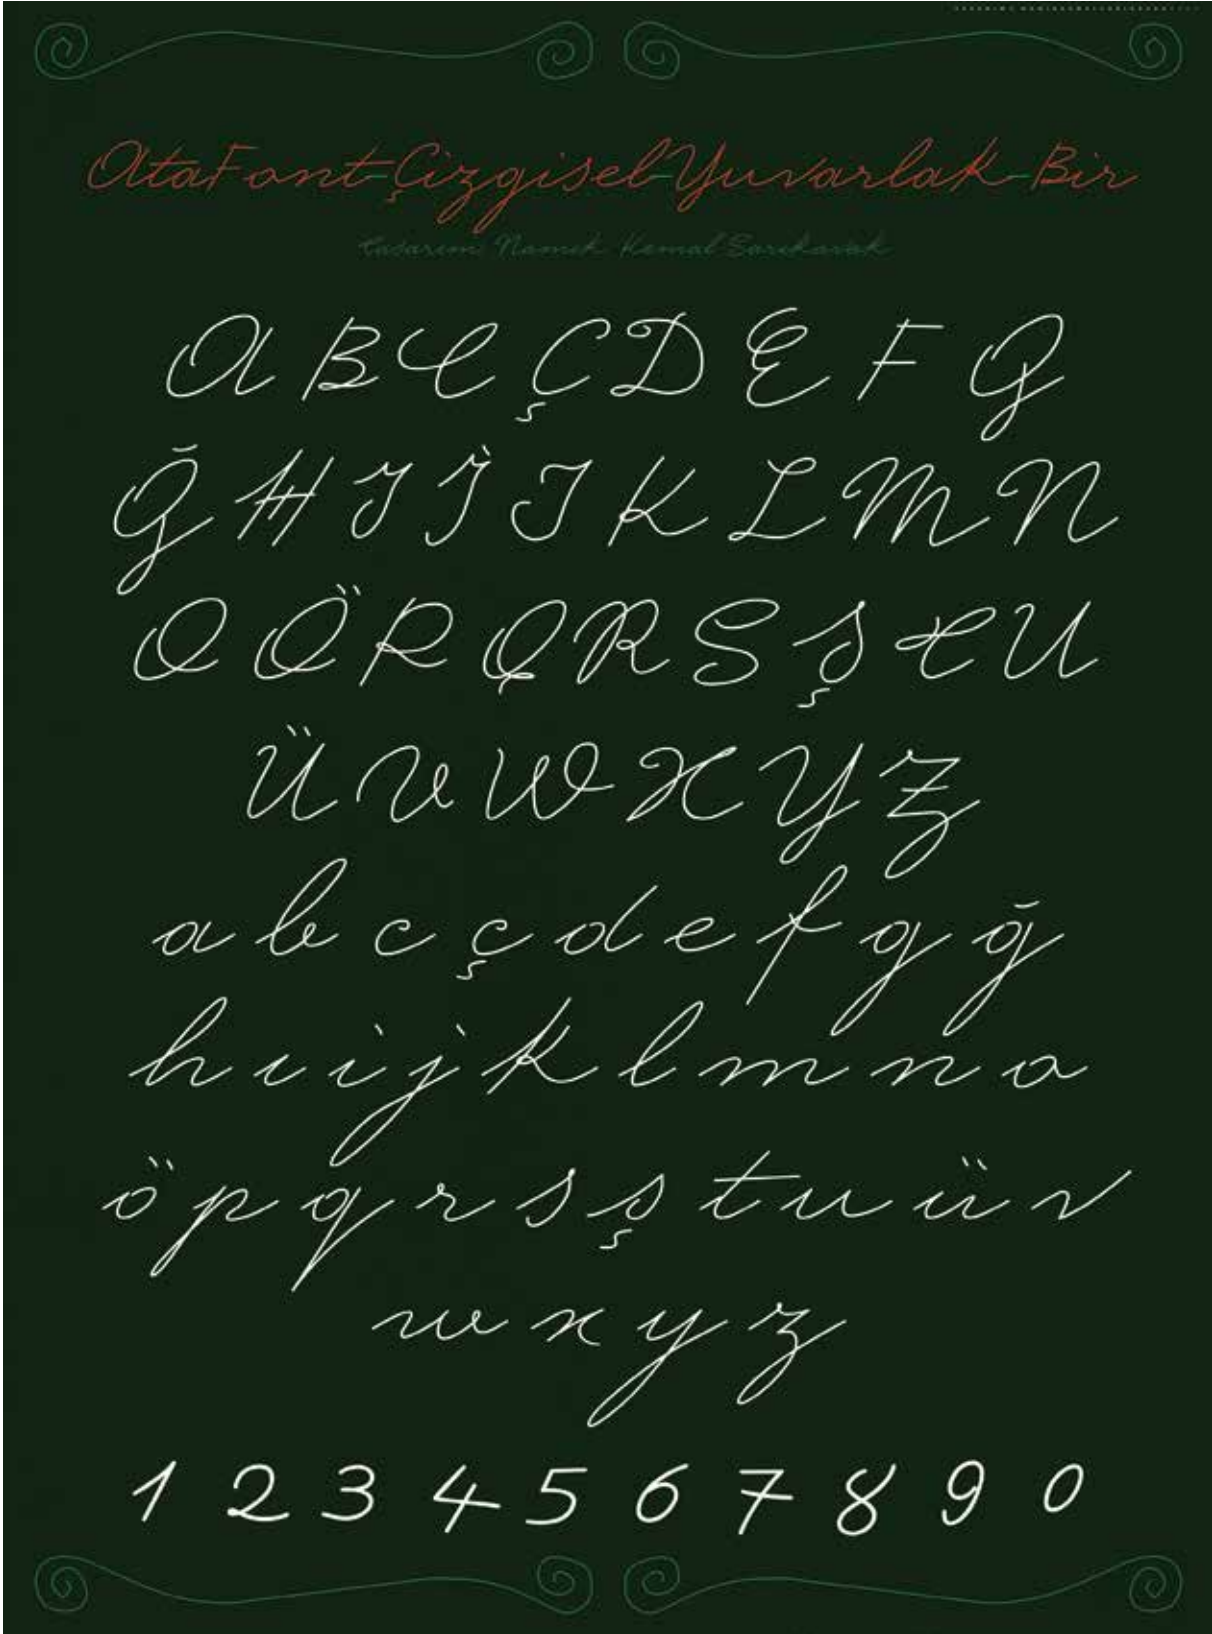 AtaFont-Çizgisel-Yuvarlak-Bir
Tasarım: Namık Kemal Sarıkavak
A B C Ç D E F G
Ğ H I İ J K L M N
O Ö P Q R S Ş T U
Ü V W X Y Z
a b c ç d e f g ğ
h ı i j k l m n o
ö p q r s ş t u ü v
w x y z
1 2 3 4 5 6 7 8 9 0